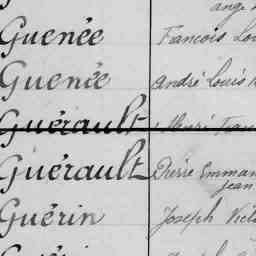 Guenée Francois
Guenée André Louis
Guérault Henri
Guérault Pierre Emman
Jean
Guérin Joseph Vict